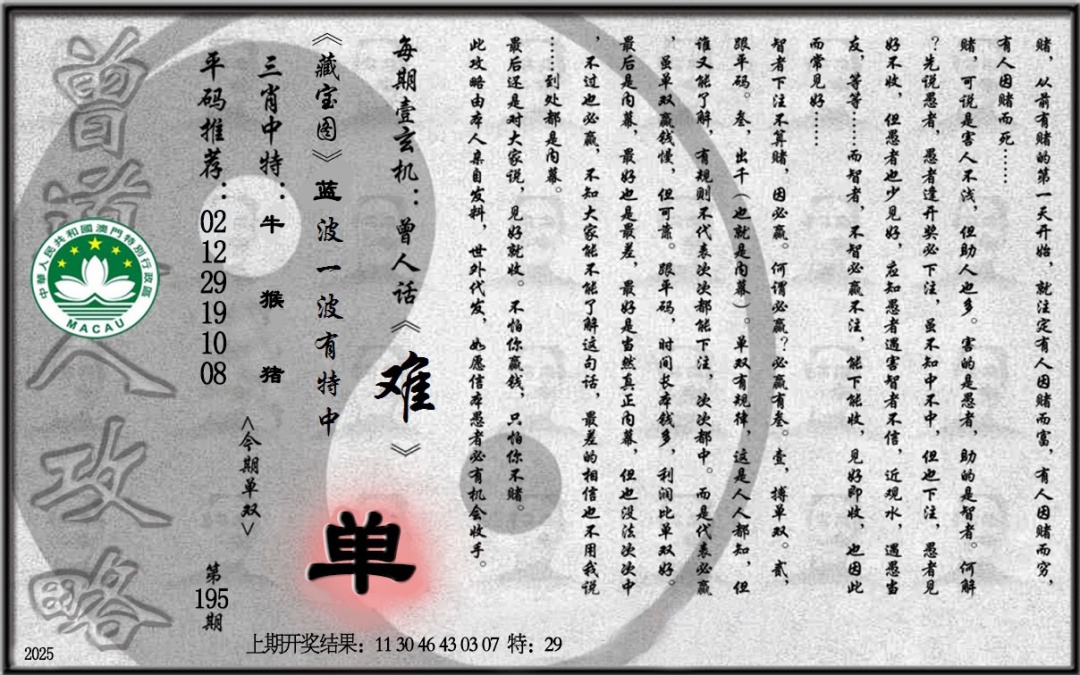 赌，从前有赌的第一天开始，就注定有人因赌而富，有人因赌而穷，
有人因赌而死……
赌，可说是害人不浅，但助人也多。害的是愚者，助的是智者。何解
？先说愚者，愚者逢开奖必下注，虽不知中不中，但也下注，愚者见
好不收，但愚者也少见好，应知愚者遇害智者不信，近观水，遇愚当
友，等等……而智者，不智必赢不注，能下能收，见好即收，也因此
而常见好……
智者下注不算赌，因必赢。何谓必赢？必赢有叁。壹，搏单双。贰，
跟平码。叁，出千（也就是内幕）。单双有规律，这是人人都知，但
谁又能了解，有规则不代表次次都能下注，次次都中。而是代表必赢
，虽单双赢钱慢，但可靠。跟平码，时间长本钱多，利润比单双好。
最后是内幕，最好也是最差，最好是当然真正内幕，但也没法次次中
，不过也必赢，不知大家能不能了解这句话，最差的相信也不用我说
……到处都是内幕。
最后还是对大家说，见好就收。不怕你赢钱，只怕你不赌。
此攻略由本人亲自发料，世外代发，如愿信本愚者必有机会收手。
每期壹玄机：曾人话《难》
《藏宝图》蓝波一波有特中
单
三肖中特：牛 猴 猪
<今期单双>
平码推荐：02 12 29 19 10 08
第195期
曾道人攻略
中華人民共和國澳門特別行政區
MACAU
上期开奖结果：11 30 46 43 03 07 特：29
2025